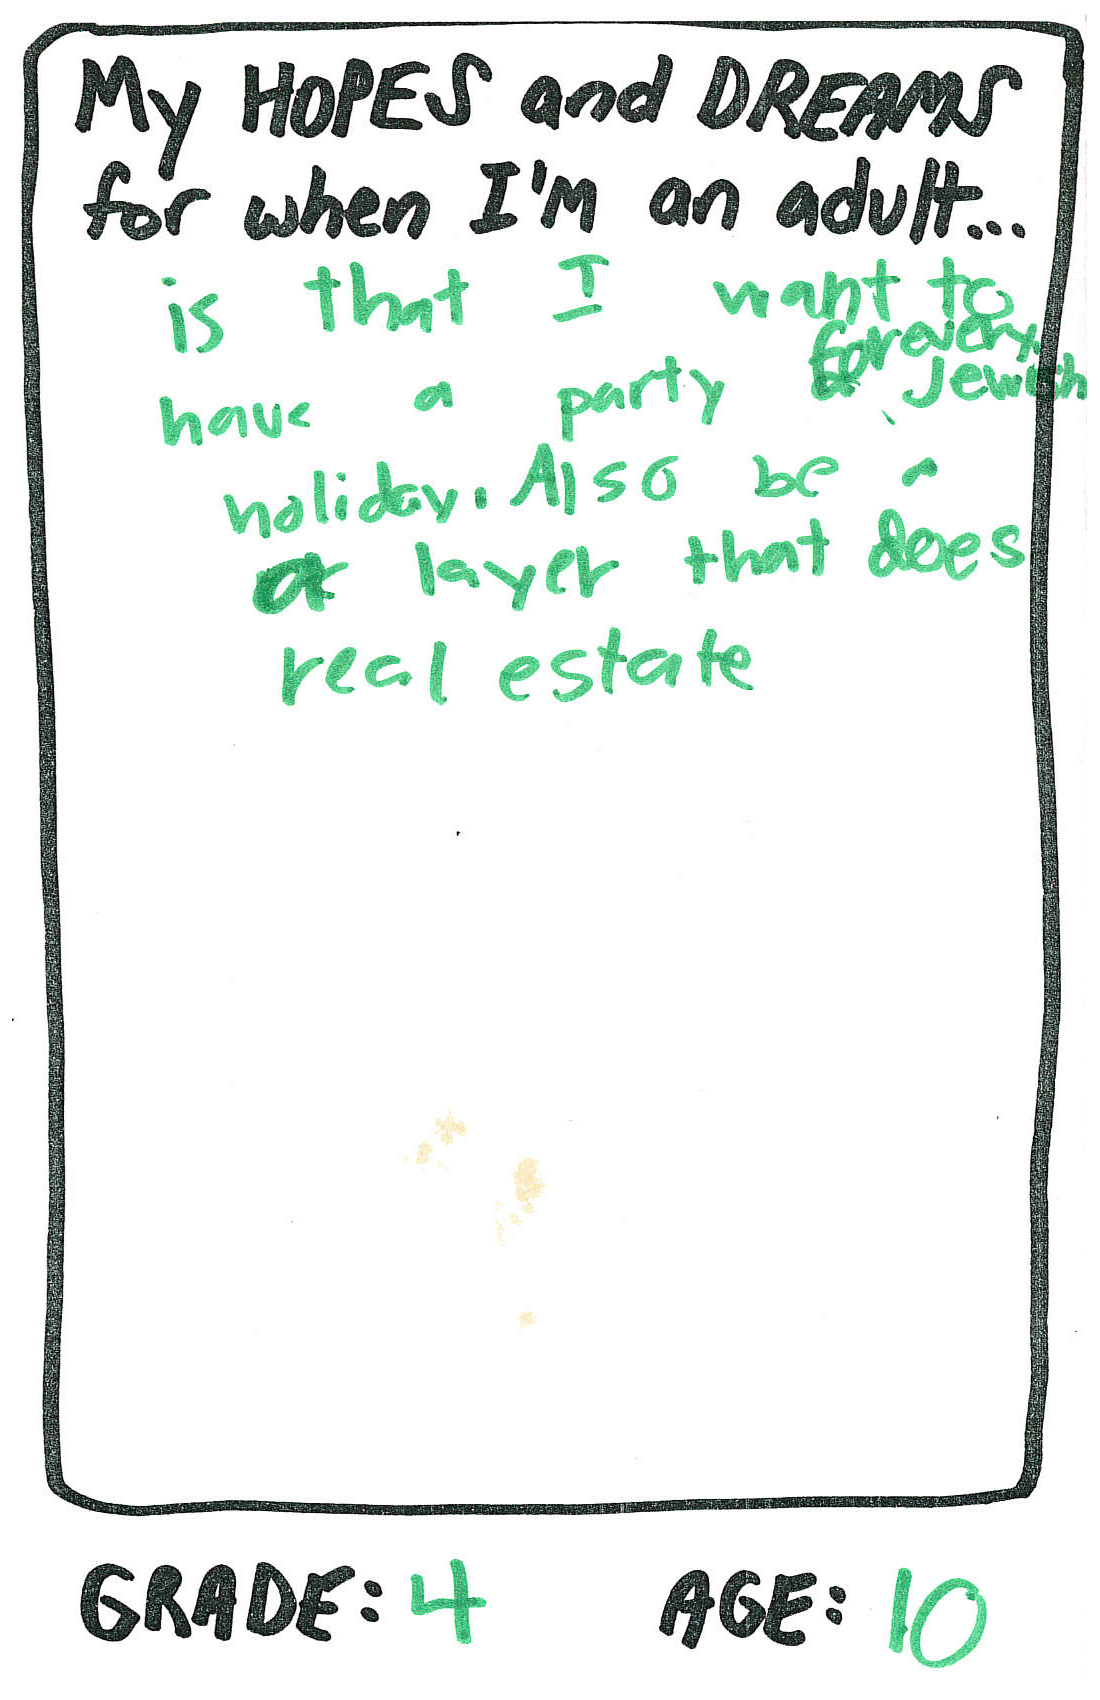 My HOPES and DREAMS
for when I'm an adult...
is that I want to
have a party for every Jewish
holiday. Also be a
layer that does
real estate
GRADE: 4 AGE: 10